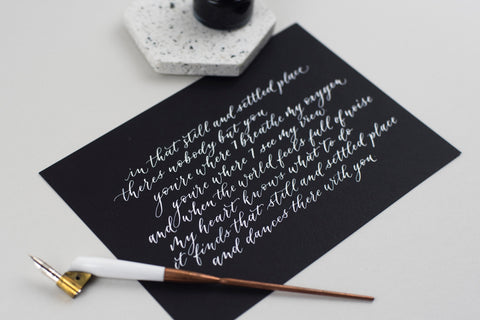 in that still and settled place
theres nobody but you
you're where I breathe my oxygen
you're where I see my view
and when the world feels full of noise
my heart knows what to do
it finds that still and settled place
and dances there with you